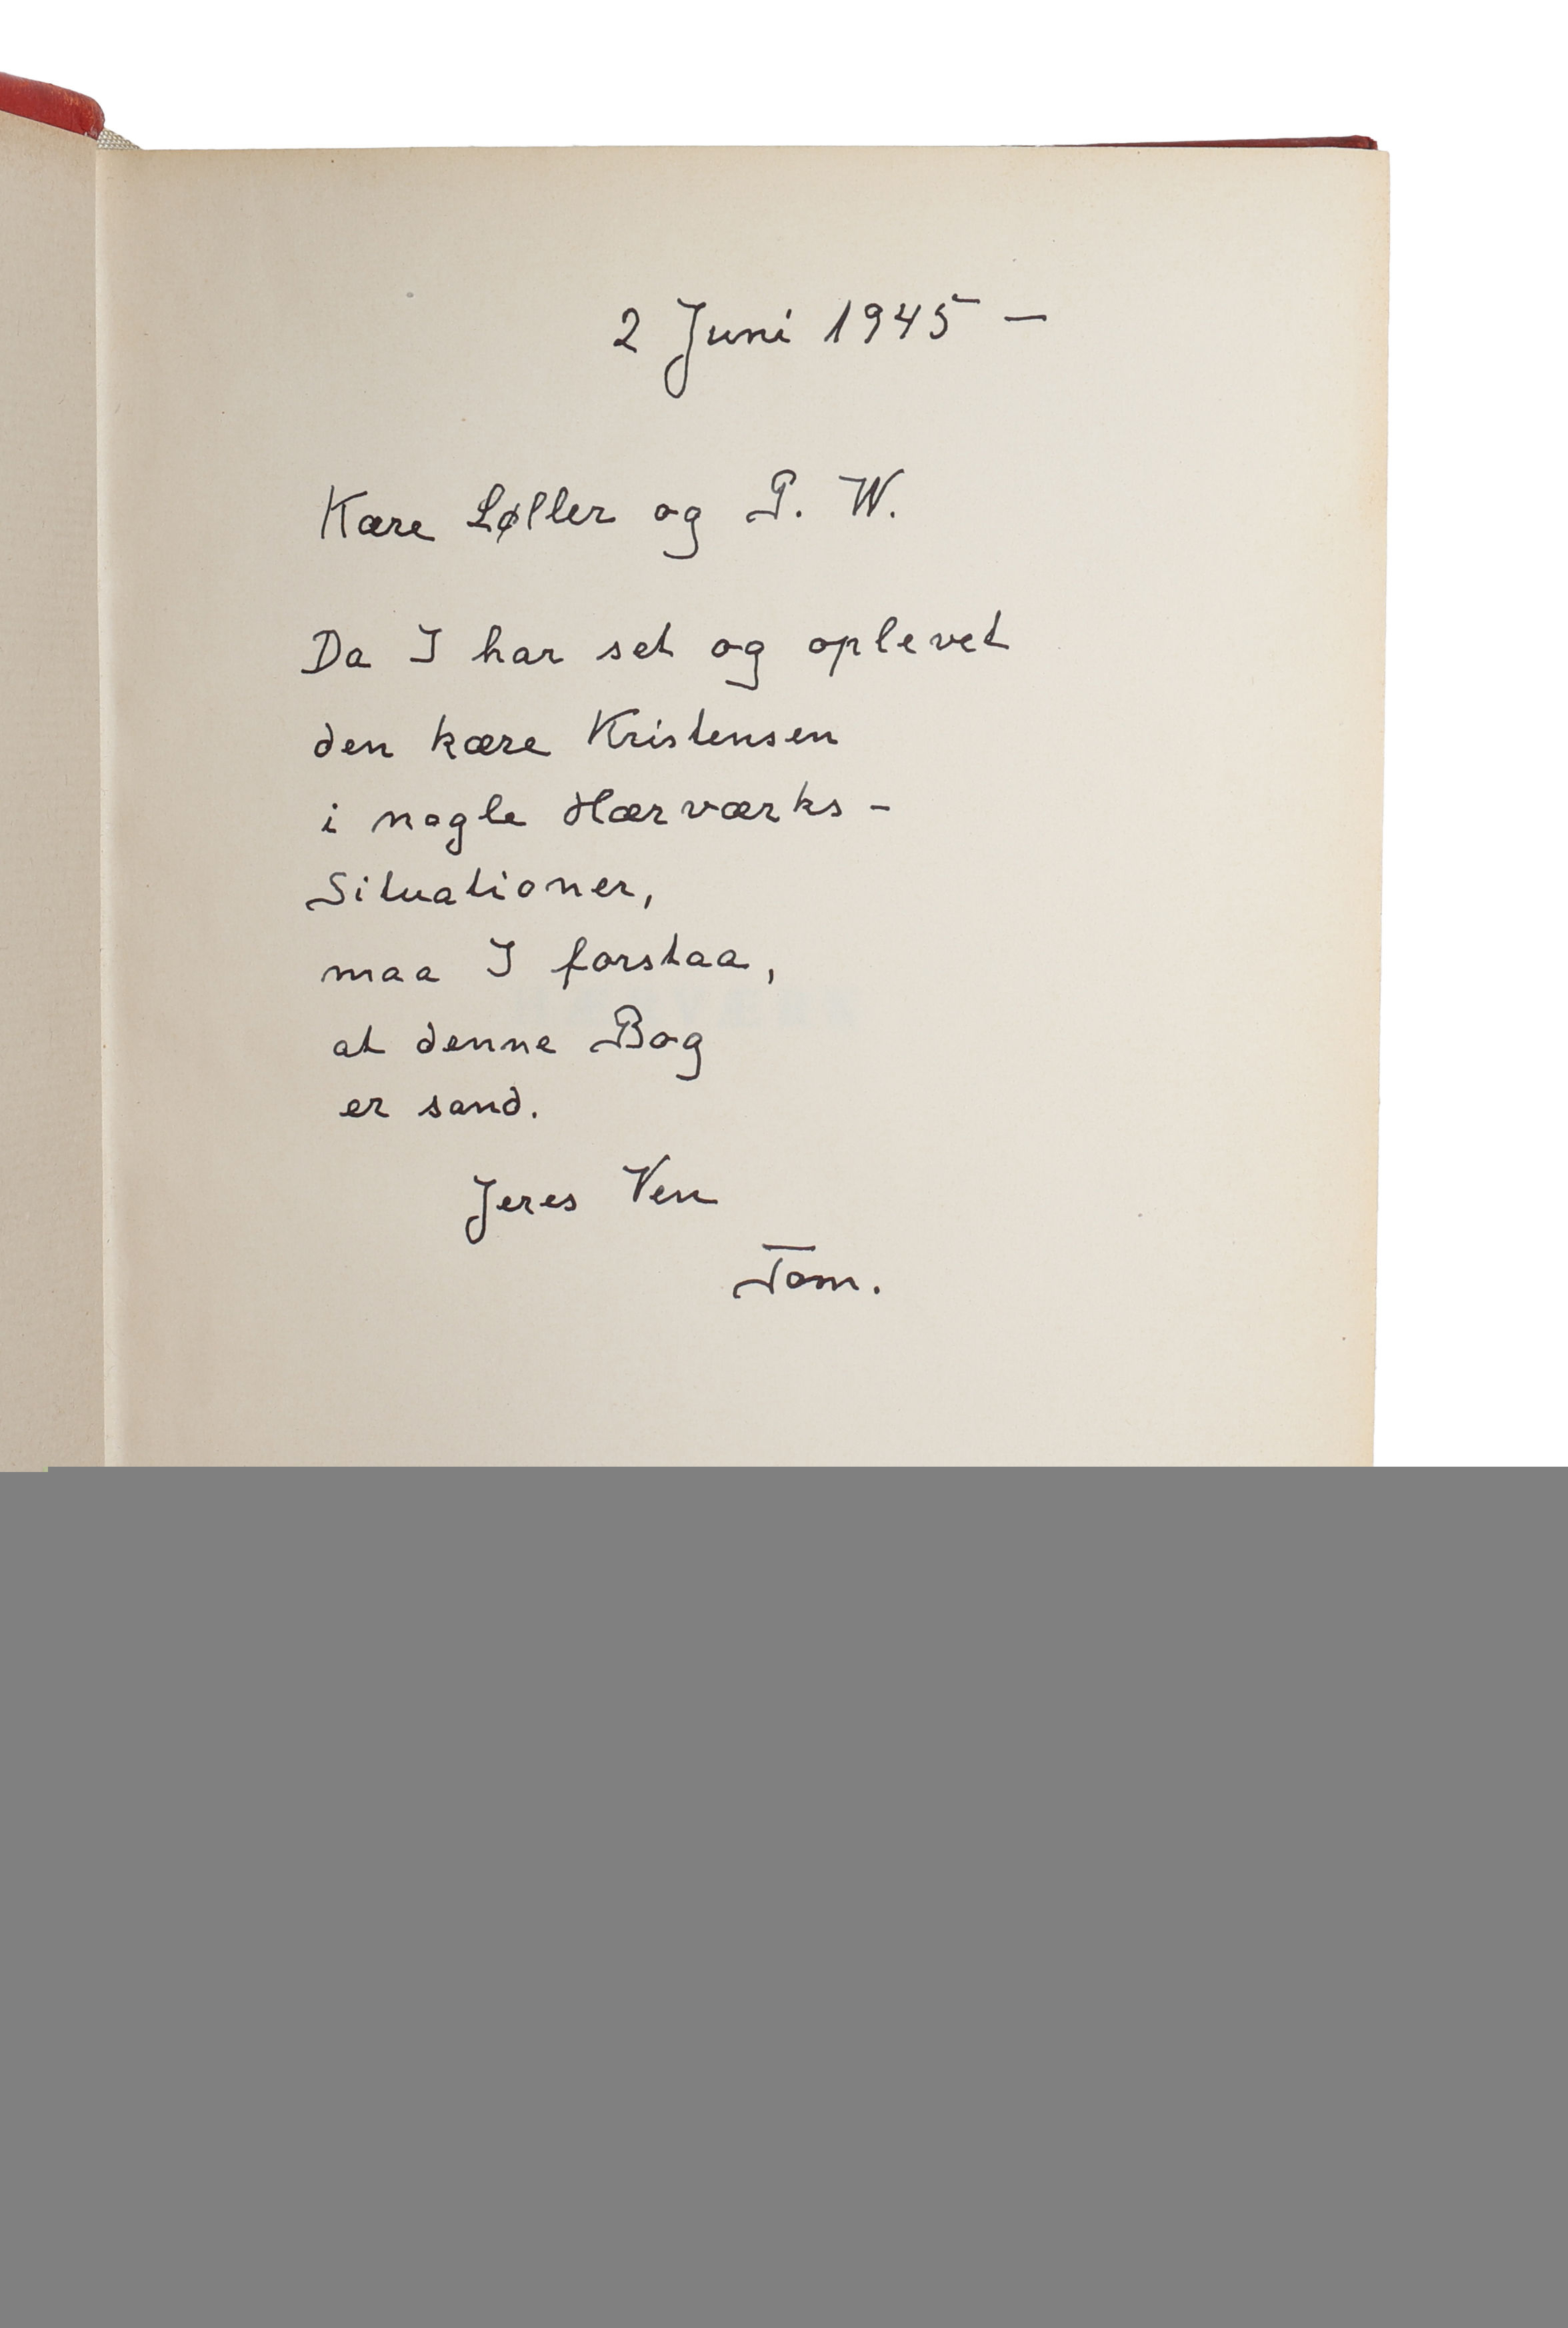 2 Juni 1945 –
Kære Løller og P. W.
Da I har set og oplevet
den kære Kristensen
i nogle Hærværks-
Situationer,
maa I forstaa,
at denne Bog
er sand.
Jeres Ven
Tom.